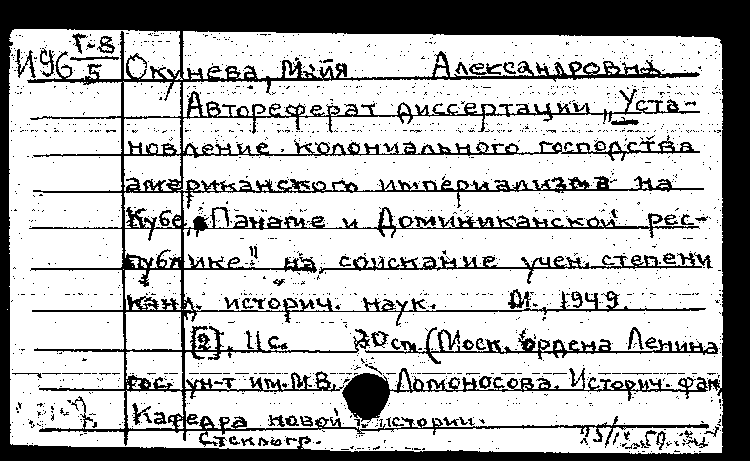 И96 Г-8/5 Окунева, Майя Александровна
Автореферат диссертации „Уста-
новление колониального господства
американского империализма на
Кубе, Панаме и Доминиканской рес-
публике" на соискание учен. степени
канд. историч. наук. М., 1949.
[2], 11 с. 20 см. (Моск. ордена Ленина
гос. ун-т им. М.В. Ломоносова. Историч. фак.
Кафедра новой истории.
Стеклогр.